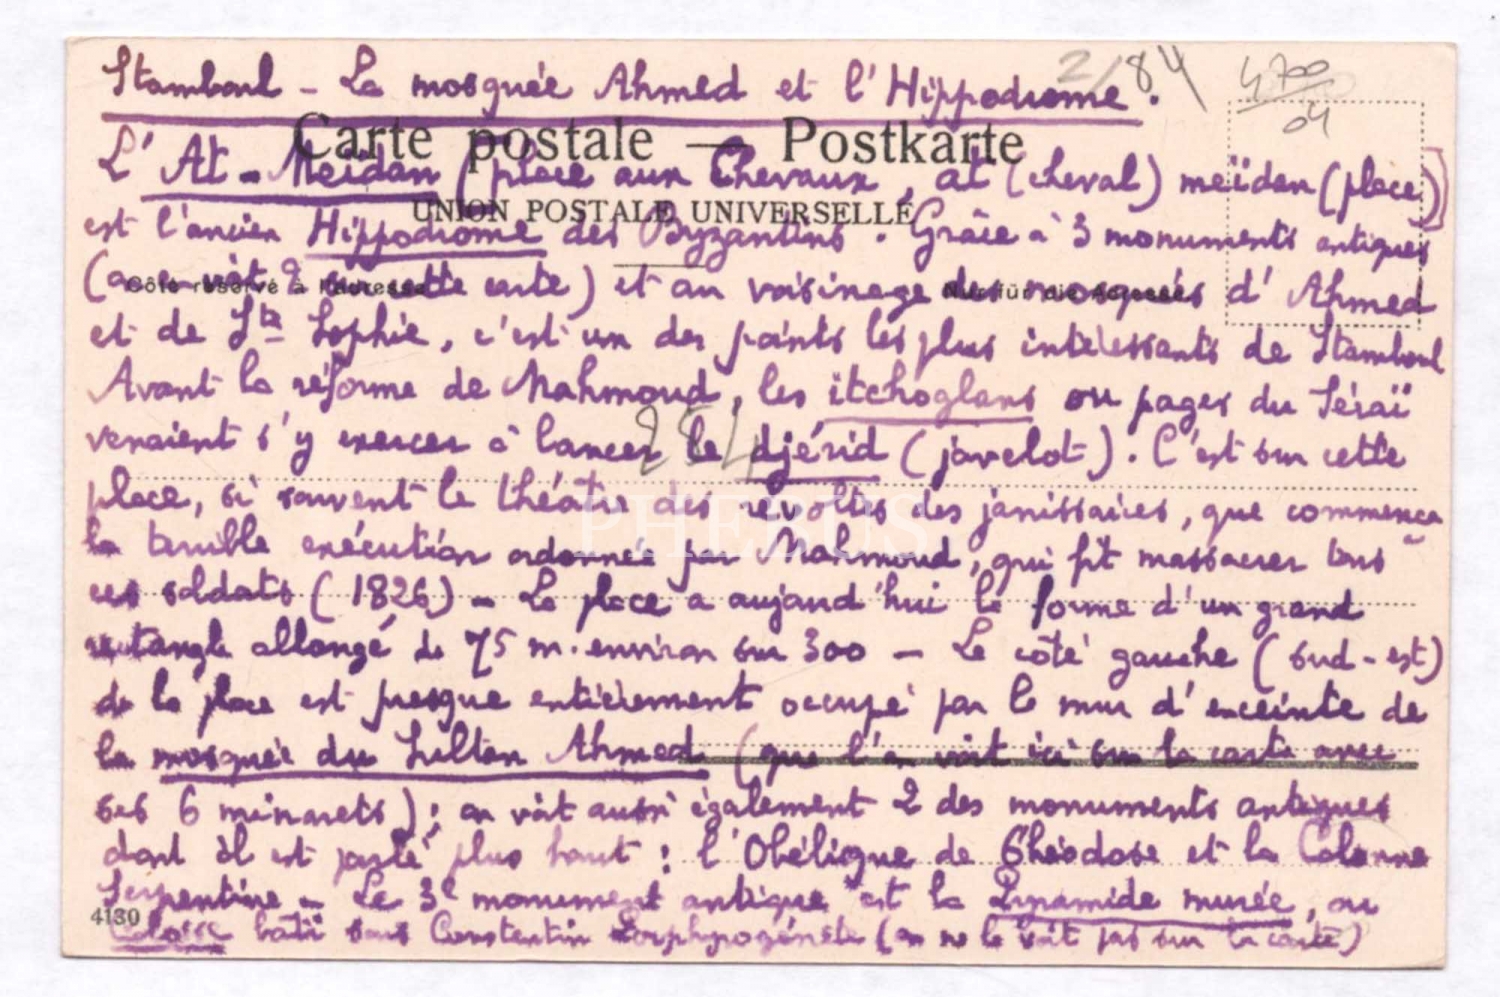 Stamboul - La mosquée Ahmed et l'Hippodrome.
2/84
4700
04
Carte postale — Postkarte
L'At-Meïdan (place aux Chevaux, at (cheval) meïdan (place))
UNION POSTALE UNIVERSELLE
est l'ancien Hippodrome des Byzantins. Grâce à 3 monuments antiques
Côté réservé à l'adresse
Nur für die Adresse
(on en voit 2 sur cette carte) et au voisinage des mosquées d'Ahmed
et de Ste Sophie, c'est un des points les plus intéressants de Stamboul
Avant la réforme de Mahmoud, les itchoglans ou pages du Séraï
venaient s'y exercer à lancer le djérid (javelot). C'est sur cette
254
place, si souvent le théâtre des révoltes des janissaires, que commença
PHEBUS
la terrible exécution ordonnée par Mahmoud, qui fit massacrer tous
ces soldats (1826) - La place a aujourd'hui la forme d'un grand
rectangle allongé de 75 m. environ sur 300 - Le côté gauche (sud-est)
de la place est presque entièrement occupé par le mur d'enceinte de
la mosquée du Sultan Ahmed (que l'on voit ici sur la carte avec
ses 6 minarets); on voit aussi également 2 des monuments antiques
dont il est parlé plus haut : l'Obélique de Théodose et la Colonne
Serpentine - Le 3e monument antique est la Pyramide murée, ou
4130
Colosse bâti sous Constantin Porphyrogénète (on ne le voit pas sur la carte)